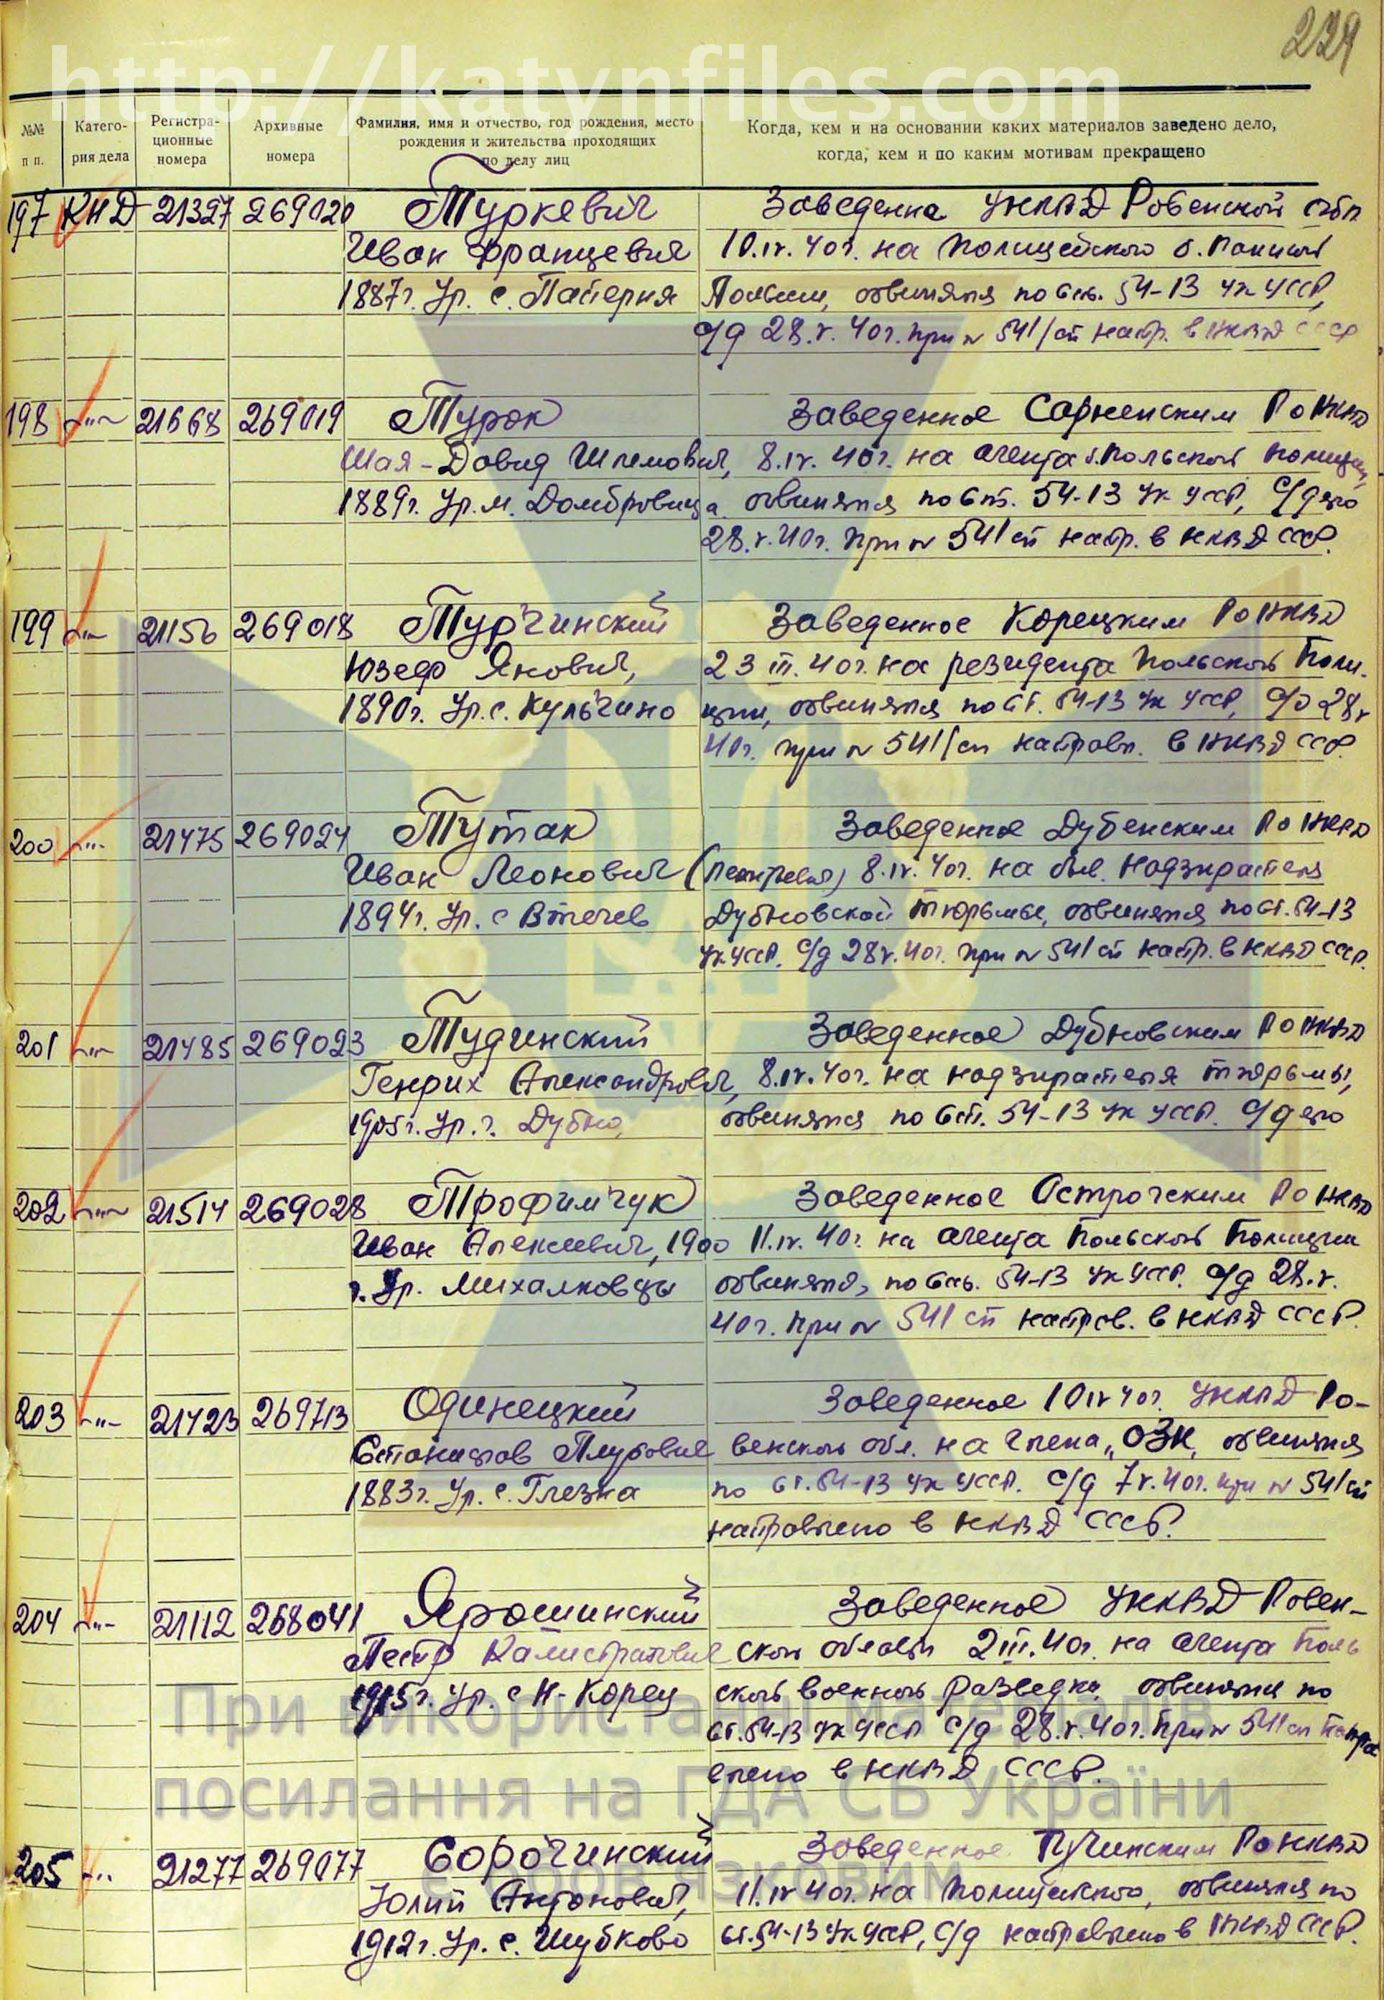 224
http://katynfiles.com
№№ п п.
Катего- рия дела
Регистра- ционные номера
Архивные номера
Фамилия, имя и отчество, год рождения, место рождения и жительства проходящих по делу лиц
Когда, кем и на основании каких материалов заведено дело, когда, кем и по каким мотивам прекращено
197 КПД 21327 269020 Туркевич Заведенна УНКВД Ровенской обл
Иван Францевич 10.IV.40г. на Полицейского б.
1887г. Ур. с. Паперня Польши, обвинялся по ст. 54-13 УК УССР,
с/д 28.V.40г. при № 541/сп напр. в НКВД СССР
198 -"- 21668 269019 Турок Заведенное Сарненским РО НКВД
Шая-Довид Шлемович, 8.IV.40г. на агента б. Польской полиции,
1889г. Ур. м. Домбровица обвинялся по ст. 54-13 УК УССР, с/дело
28.V.40г. при № 541 сп напр. в НКВД СССР.
199 -"- 21156 269018 Турчинский Заведенное Корецким РО НКВД
Юзеф Янович, 23 III.40г. на резидента Польской Поли-
1890г. Ур. с. Кульчино ции, обвинялся по ст. 54-13 УК УССР, с/д 28.V
40г. при № 541/сп направл. в НКВД СССР.
200 -"- 21475 269024 Тутак Заведенное Дубенским РО НКВД
Иван Леонович 8.IV.40г. на быв. надзирателя
1894г. Ур. с Дубновской тюрьмы, обвинялся по ст. 54-13
УК УССР. с/д 28.V.40г. при № 541 сп напр. в НКВД СССР.
201 -"- 21485 269023 Тудчинский Заведенное Дубновским РО НКВД
Генрих Александрович, 8.IV.40г. на надзирателя тюрьмы,
1905г. Ур. г. Дубно, обвинялся по ст. 54-13 УК УССР. с/дело
202 -"- 21514 269028 Трофимчук Заведенное Острогским РО НКВД
Иван Алексеевич, 1900 11.IV.40г. на агента Польской Полиции
г. Ур. Михалковцы обвинялся, по ст. 54-13 УК УССР. с/д 28.V.
40г. при № 541 сп направ. в НКВД СССР.
203 -"- 21423 269713 Одинецкий Заведенное 10 IV 40г. УНКВД Ро-
Станислав венской обл. на члена „ОЗН", обвинялся
1883г. Ур. с. Глезна по ст. 54-13 УК УССР. с/д 7.V.40г. при № 541 сп
направлено в НКВД СССР.
204 -"- 21112 268041 Ярошинский Заведенное УНКВД Ровен-
Петр Калистратович ской области 2 III.40г. на агента Поль
1915г. Ур. с Н-Корец ской военной разведки, обвинялся по
ст. 54-13 УК УССР с/д 28.V.40г. при № 541 сп напра
влено в НКВД СССР.
205 -"- 21277 269077 Сорочинский Заведенное РО НКВД
Юлий Антонович, 11.IV 40г. на полицейского, обвинялся по
1912г. Ур. с. Шубково ст. 54-13 УК УССР, с/д направлено в НКВД СССР.
При використанні матеріалів
посилання на ГДА СБ України
є обов'язковим